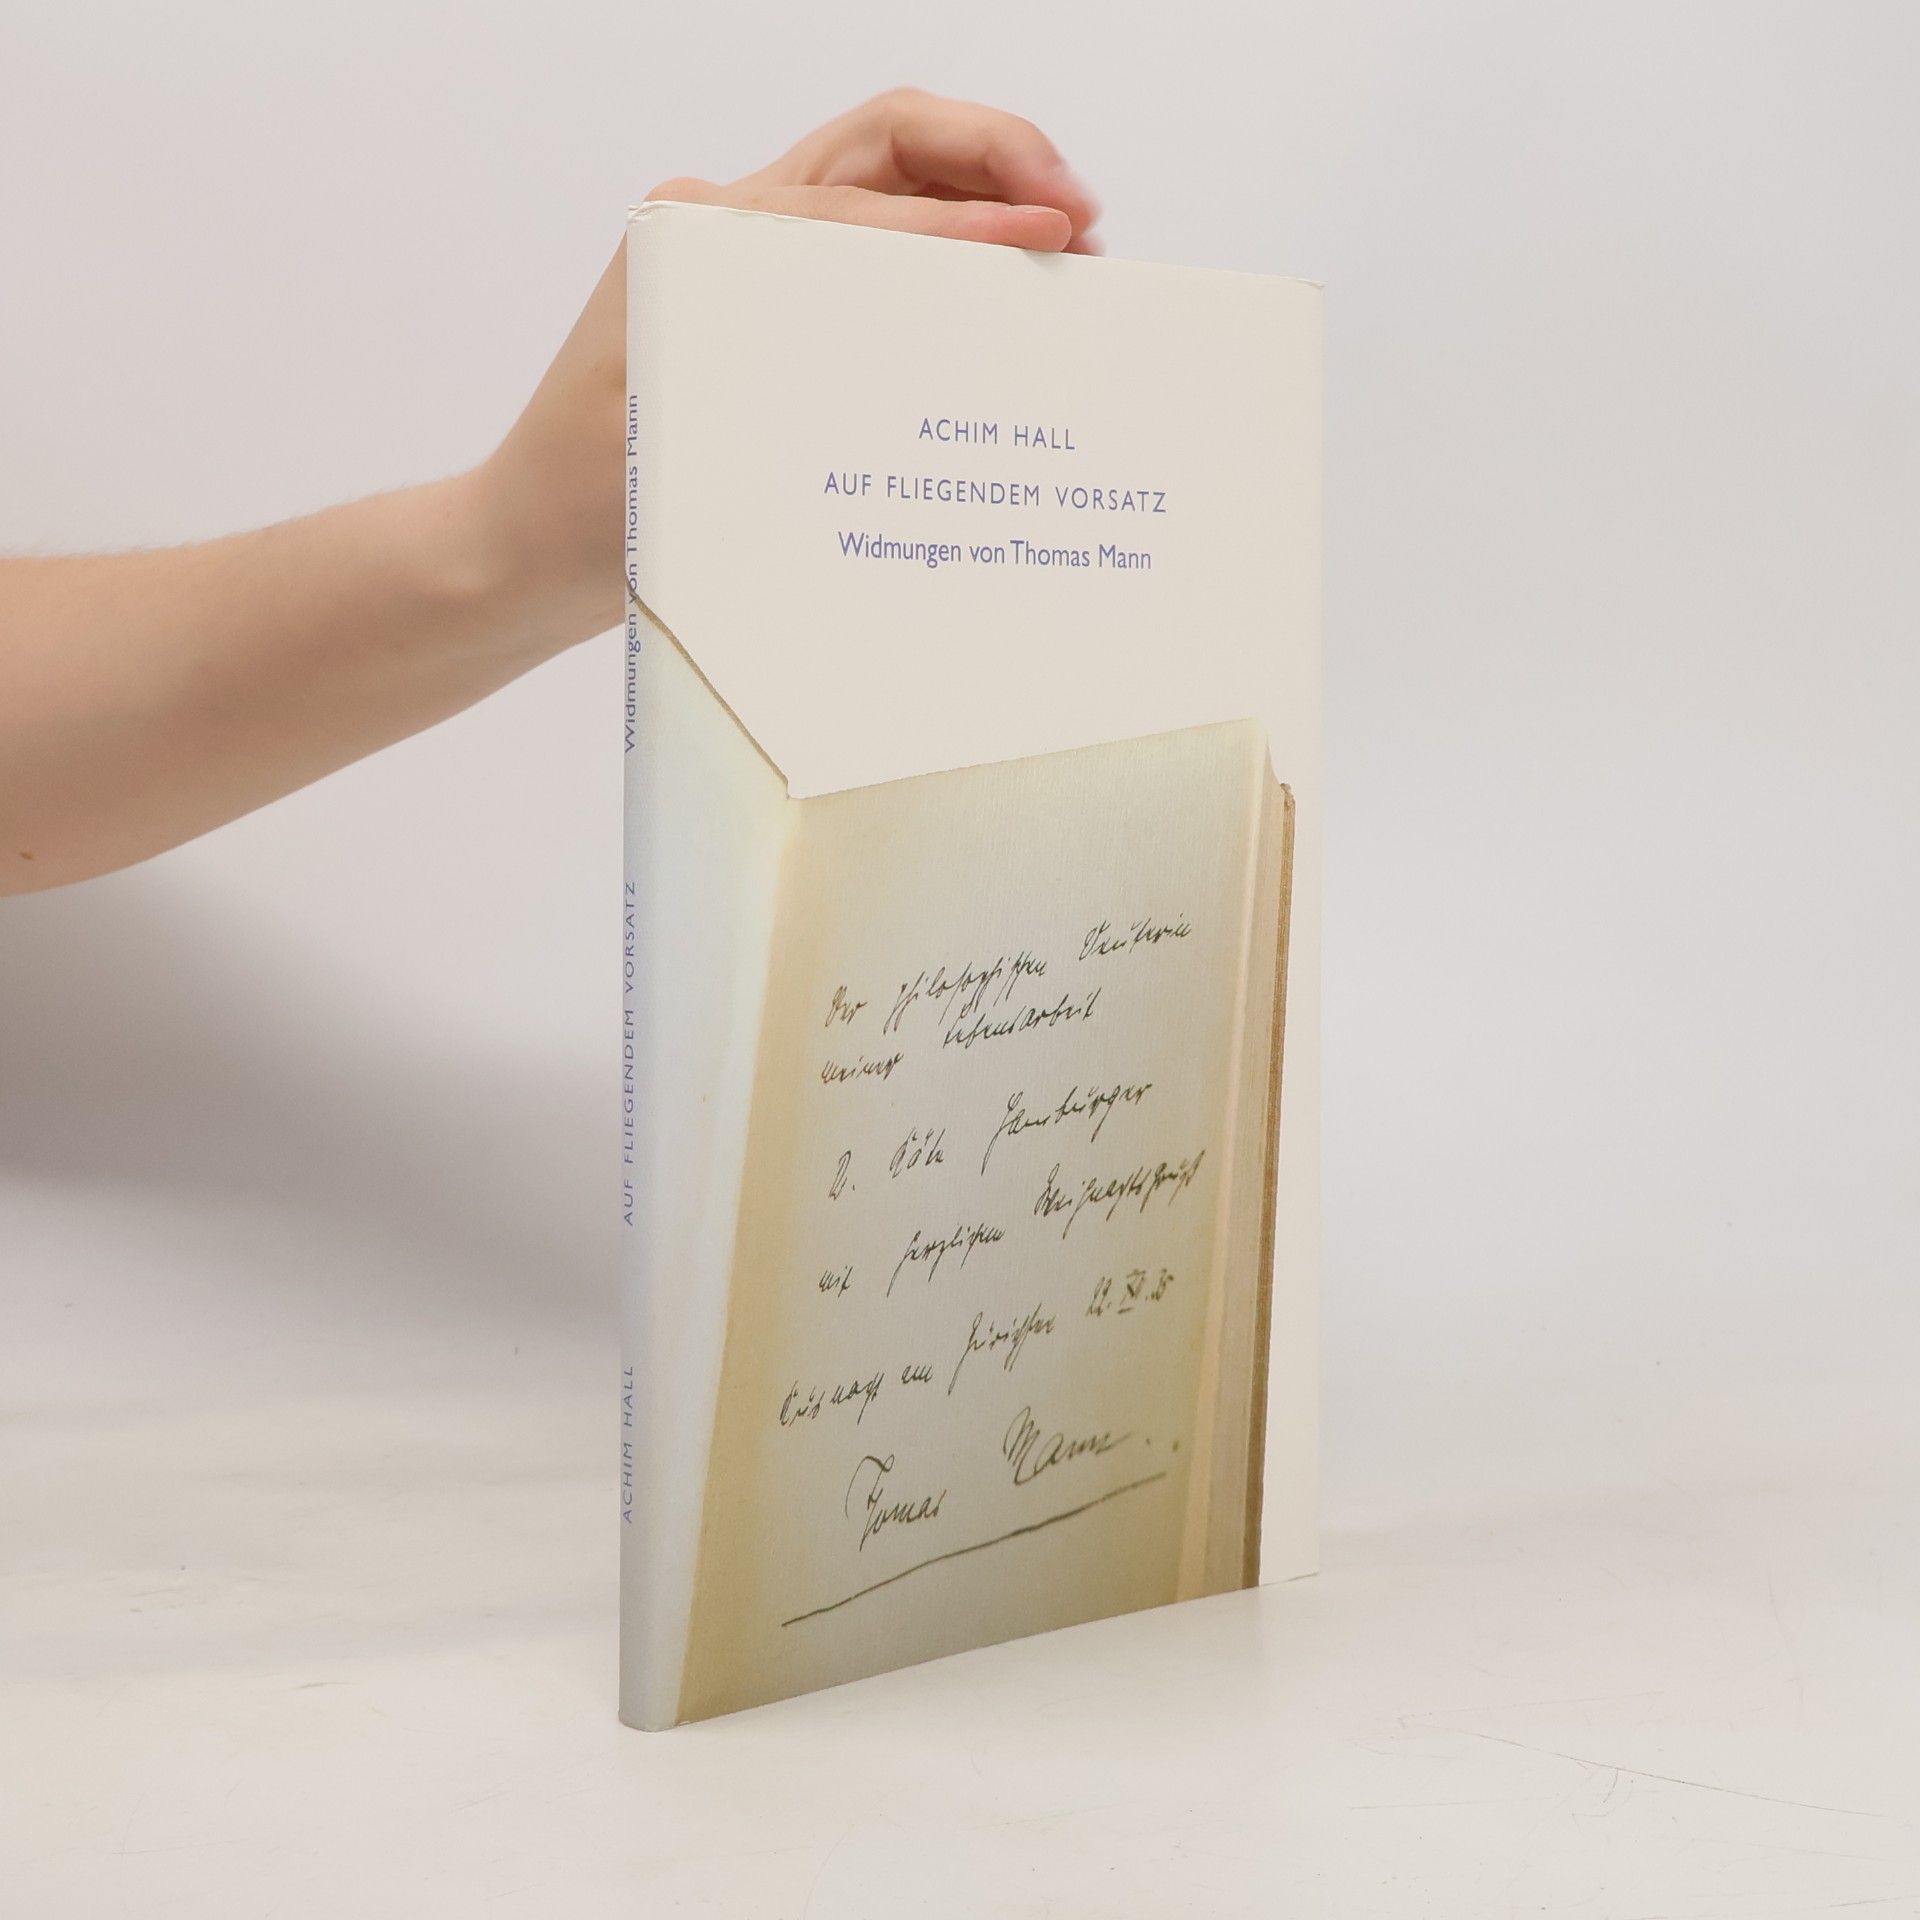 ACHIM HALL
AUF FLIEGENDEM VORSATZ
Widmungen von Thomas Mann
Der philosophischen Deuterin
meiner Lebensarbeit
D. Käte Hamburger
mit herzlichem Weihnachtsgruß
Küsnacht am Zürichsee 22. XII. 35
Thomas Mann.
ACHIM HALL AUF FLIEGENDEM VORSATZ Widmungen von Thomas Mann